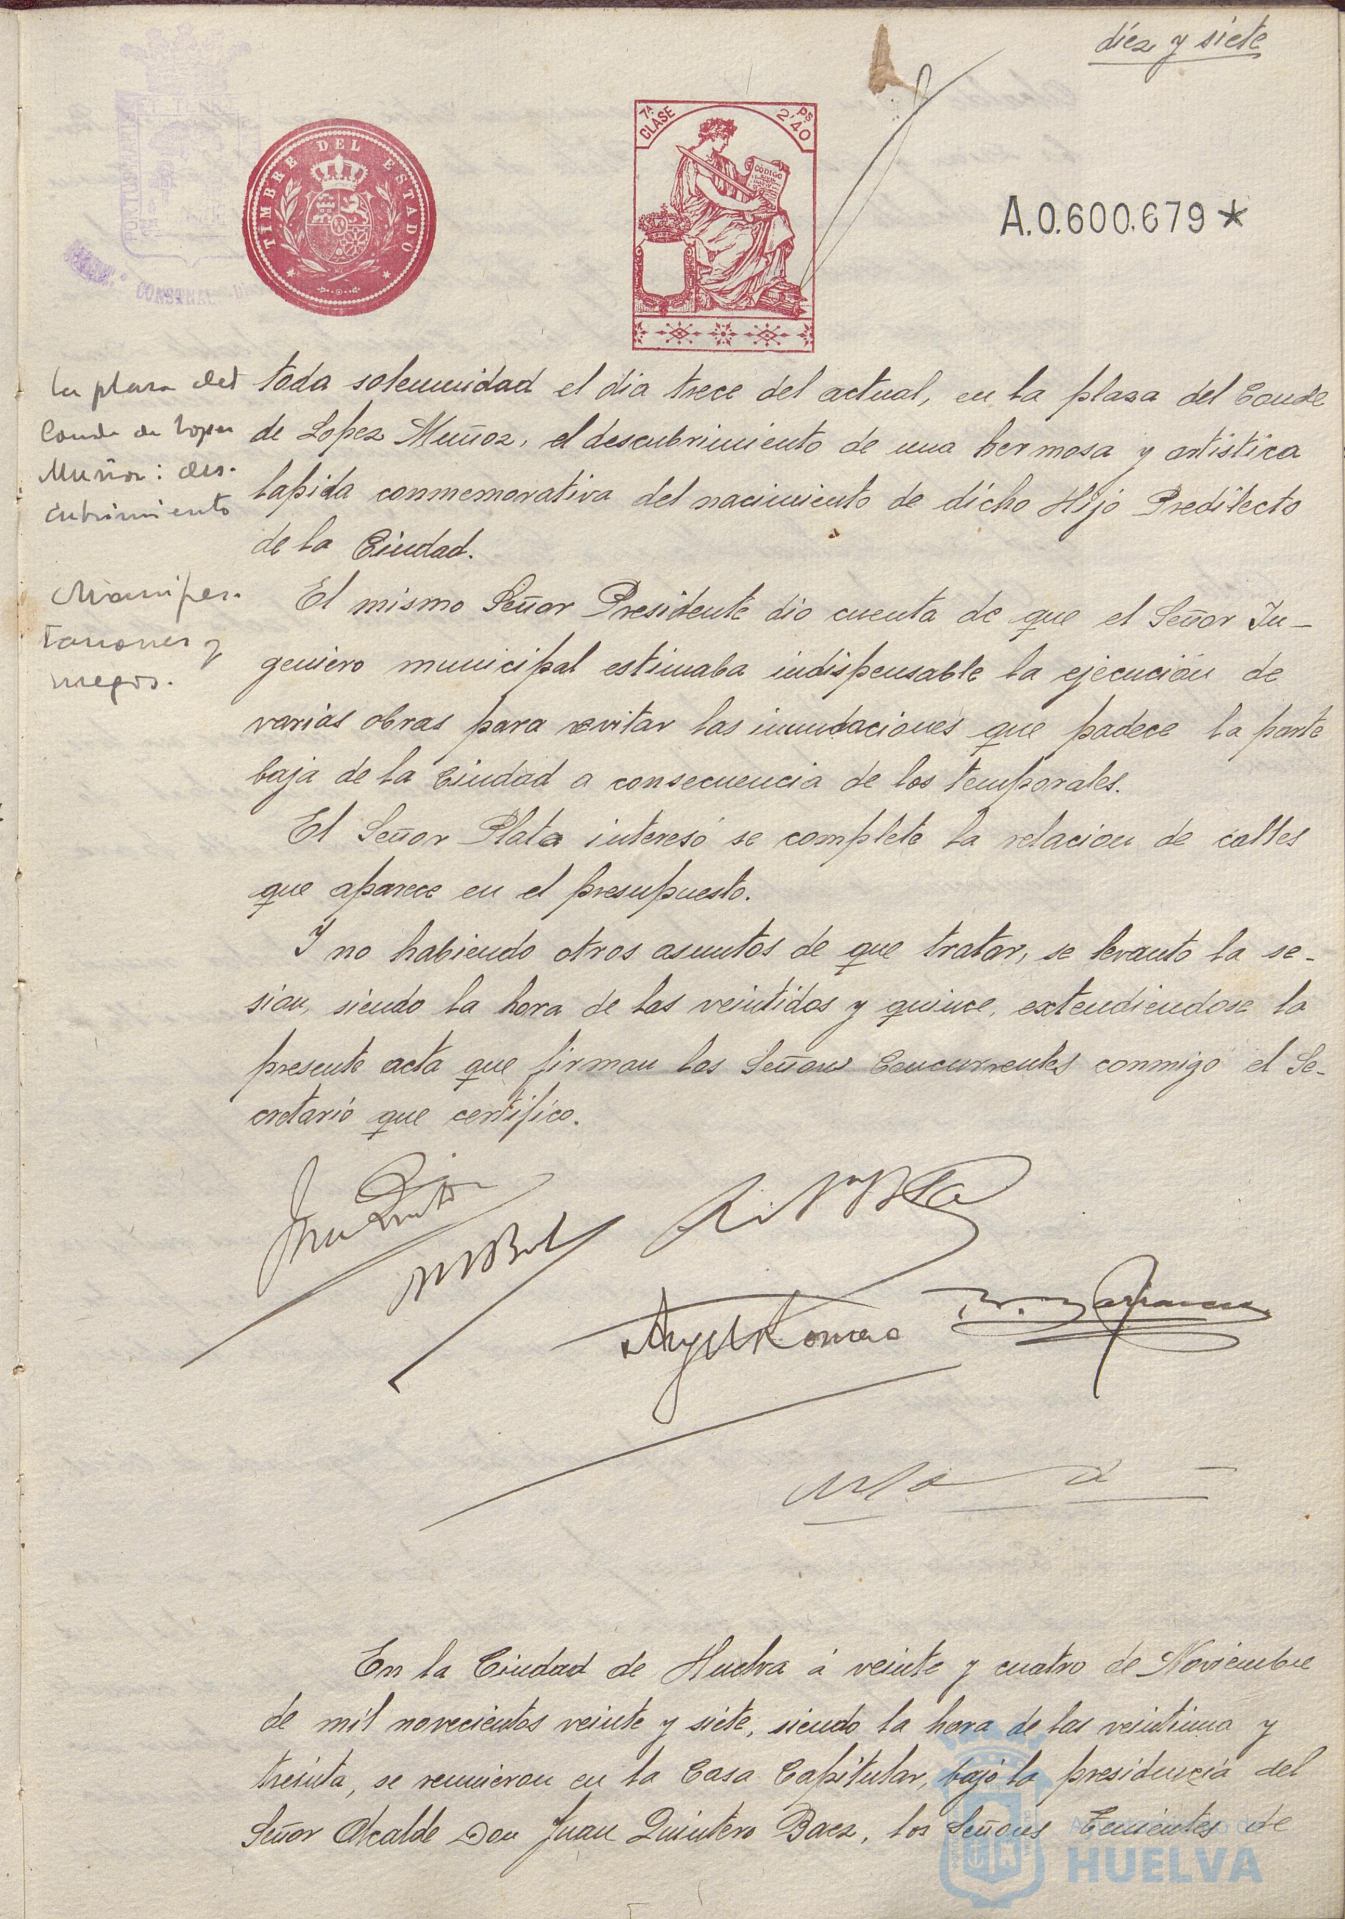 diez y siete
TIMBRE DEL ESTADO
7ª CLASE
Ps 2'40
CODIGO
A.0.600.679*
la plaza del
Conde de Lopez
Muñoz: des-
cubrimiento
toda solemnidad el dia trece del actual, en la plaza del Conde
de Lopez Muñoz, el descubrimiento de una hermosa y artistica
lapida conmemorativa del nacimiento de dicho Hijo Predilecto
de la Ciudad.
Manifes-
taciones y
ruegos.
El mismo Señor Presidente dio cuenta de que el Señor In-
geniero municipal estimaba indispensable la ejecución de
varias obras para evitar las inundaciones que padece la parte
baja de la Ciudad a consecuencia de los temporales.
El Señor Plata interesó se complete la relacion de calles
que aparece en el presupuesto.
Y no habiendo otros asuntos de que tratar, se levanto la se-
sion, siendo la hora de las veintidos y quince, extendiendose la
presente acta que firman los Señores Concurrentes conmigo el Se-
cretario que certifico.
Angel Romero
En la Ciudad de Huelva á veinte y cuatro de Noviembre
de mil novecientos veinte y siete, siendo la hora de las veintiuna y
treinta, se reunieron en la Casa Capitular, bajo la presidencia del
Señor Alcalde Don Juan Quintero Baez, los Señores Tenientes de
HUELVA